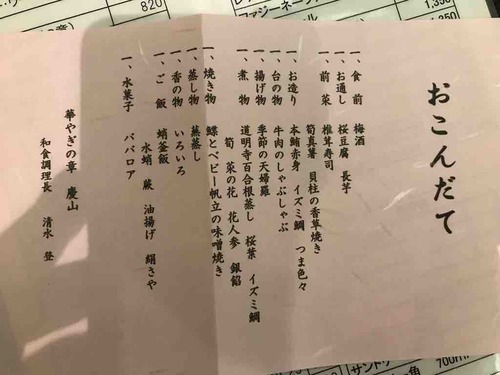 おこんだて
一、食前 梅酒
一、お通し 桜豆腐 長芋
一、前菜 椎茸寿司
筍真薯 貝柱の香草焼き
一、お造り 本鮪赤身 イズミ鯛 つま色々
一、台の物 牛肉のしゃぶしゃぶ
一、揚げ物 季節の天婦羅
一、煮物 道明寺百合根蒸し 桜葉 イズミ鯛
筍 菜の花 花人参 銀餡
一、焼き物 鰈とベビー帆立の味噌焼き
一、蒸し物 蕪蒸し
一、香の物 いろいろ
一、ご飯 蛸釜飯
水蛸 蕨 油揚げ 絹さや
一、水菓子 ババロア
華やぎの章 慶山
和食調理長 清水 登
820
1,350
700ml